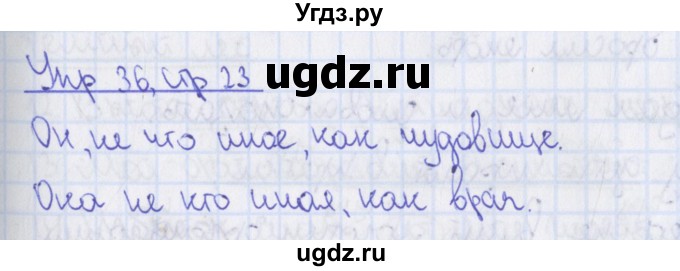 Угдз.ру
Упр 36, стр 23
ugdz.ru
Он, не что иное, как чудовище.
Она не кто иная, как врач.
ugdz.ru